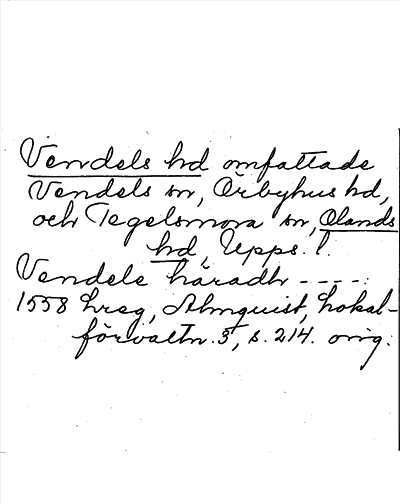 Vendels hd omfattade
Vendels sn, Örbyhus hd,
och Tegelsmora sn, Olands
hd, Upps. l.
Vendele häradh ----:
1558 hreg, Almquist, Lokal-
förvaltn. 3, s. 214. orig.